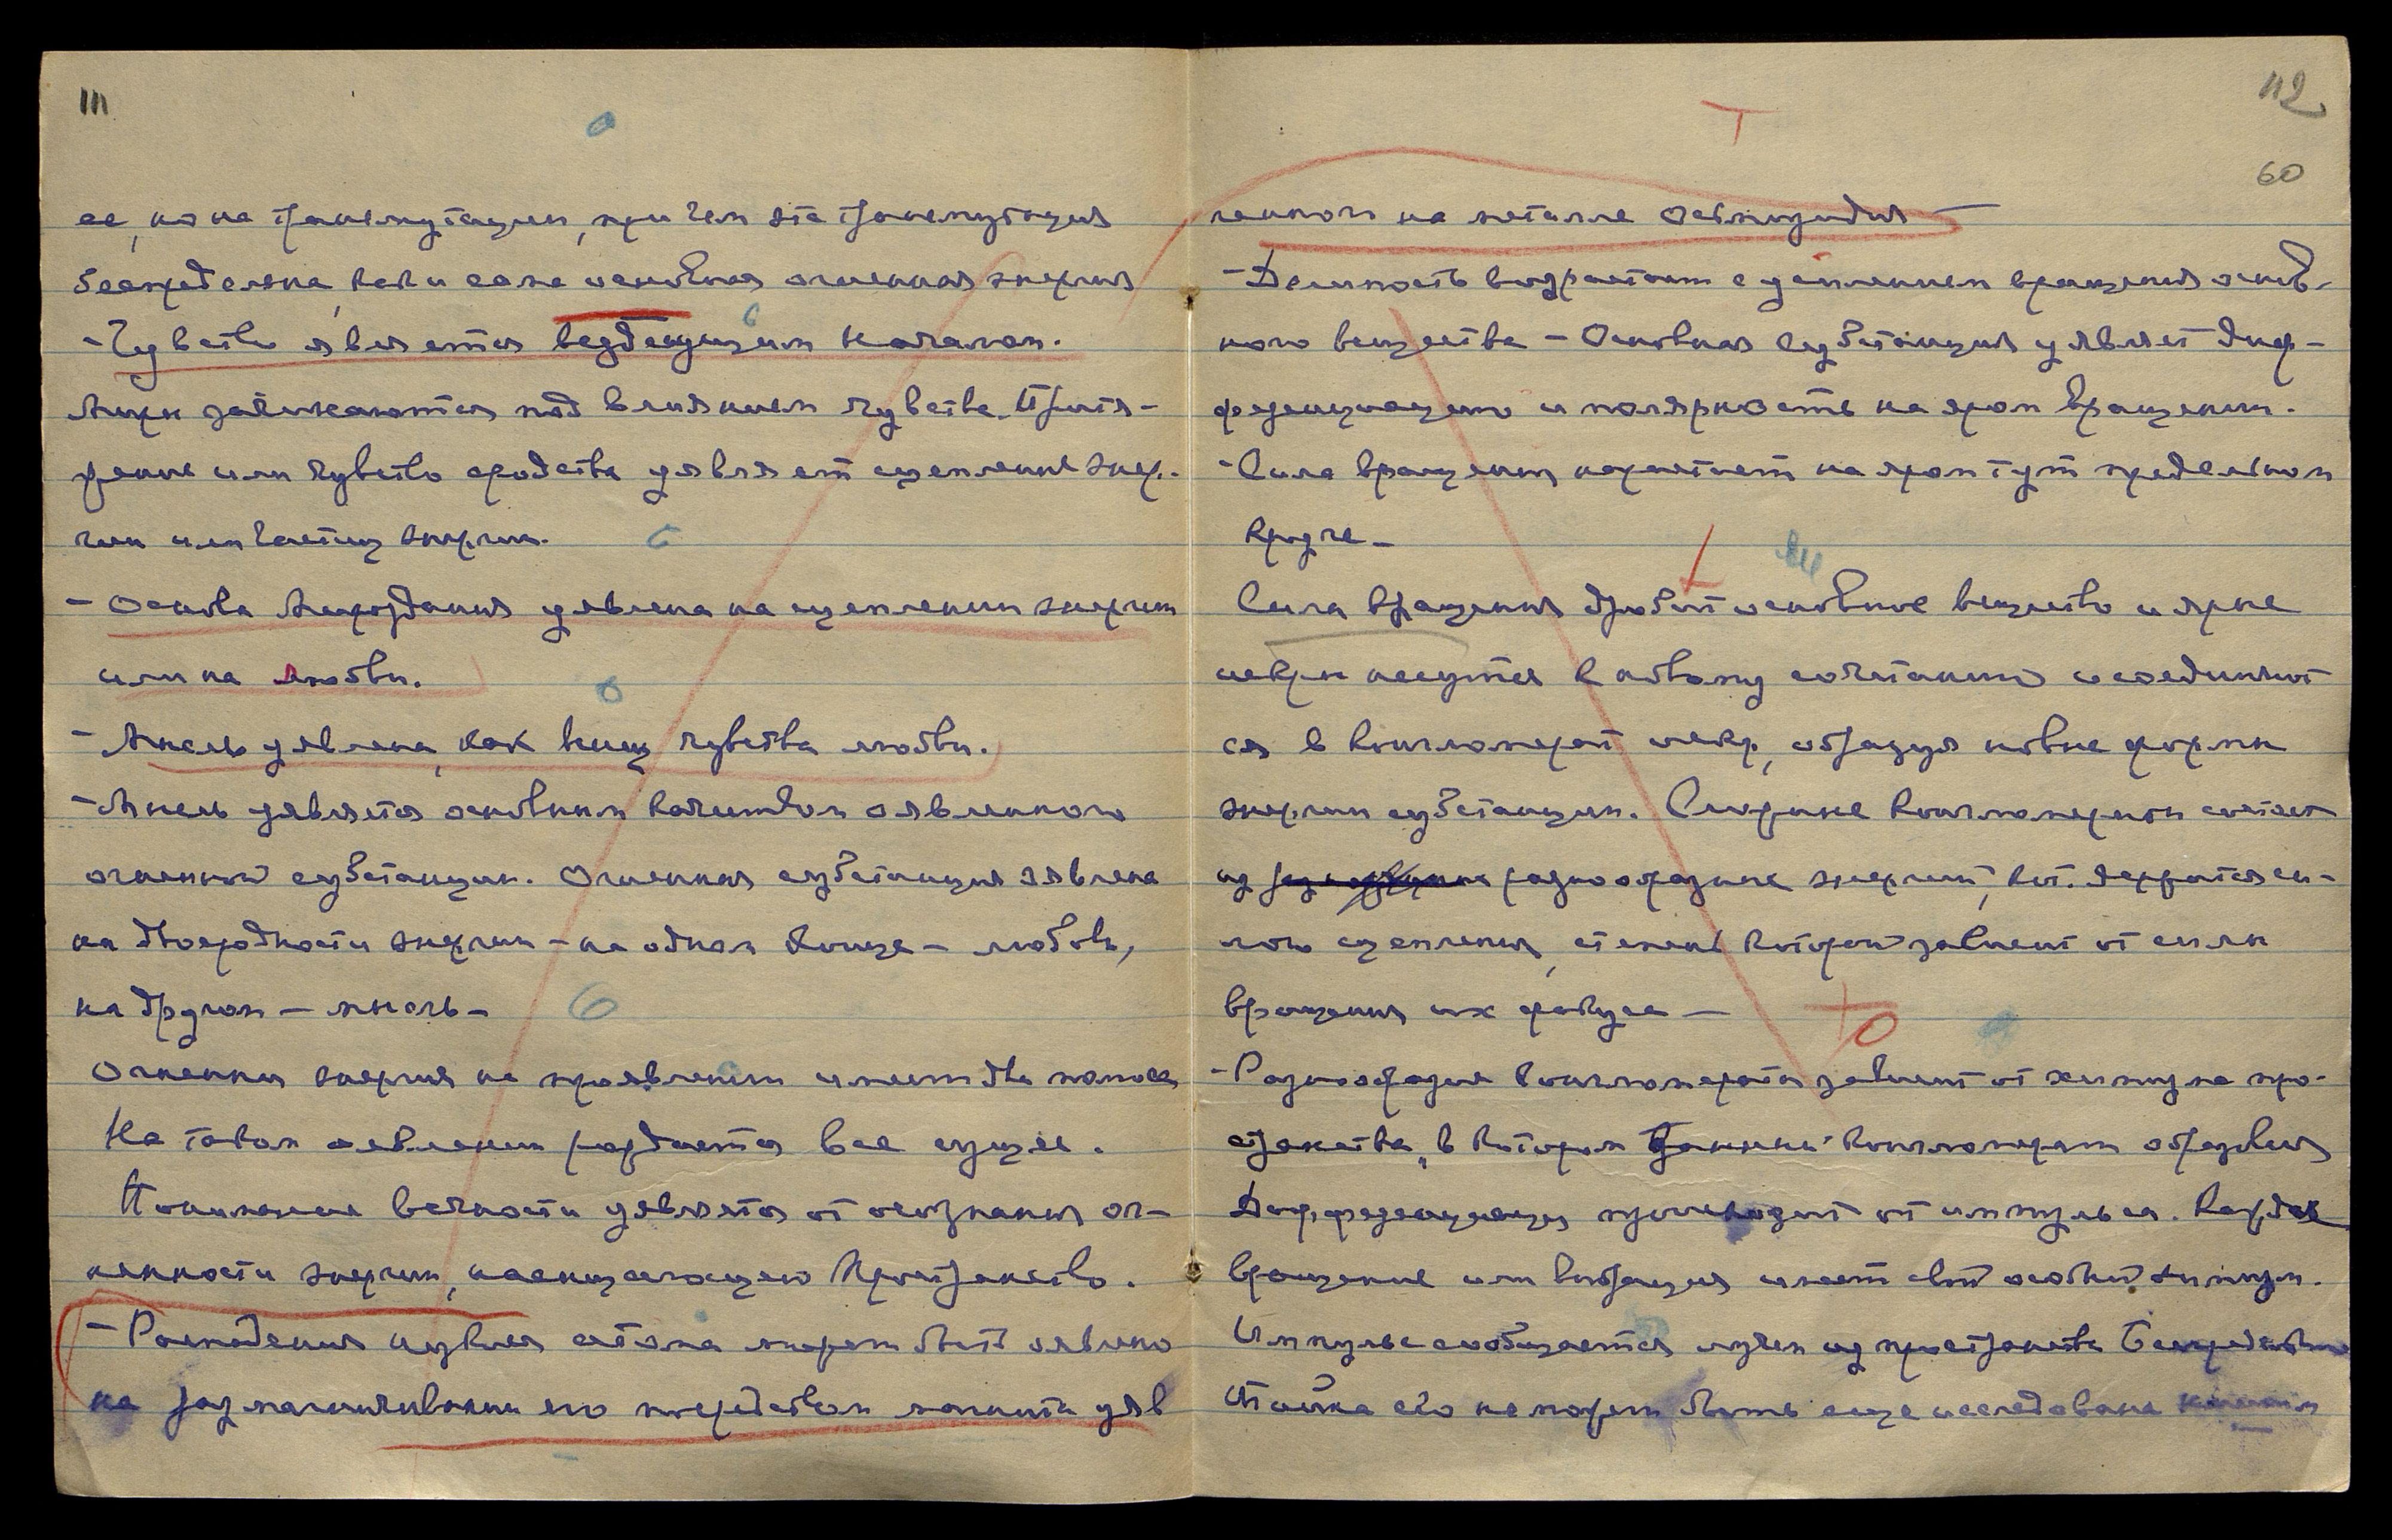 111
ее, но на трансмутации, при чем эта трансмутация
беспредельна, как и сама основная огненная энергия
- Чувство является вездесущим началом.
Миры зачинаются под влиянием чувства. Притя-
жение или чувство сродства уявляет сцепление энер-
гии или частиц энергии.
- Основа Мироздания уявлена на сцеплении энергии
или на любви.
- Мысль уявлена, как венец чувства любви.
- Мысль уявляется основным качеством оявленного
огненной субстанции. Огненная субстанция уявлена
на двоеродности энергии - на одном конце - любовь,
на другом - мысль -
Огненная энергия на проявлении имеет два полюса
На таком оявлении рождается все сущее.
Понимание вечности уявляется от осознания ог-
ненности энергии, насыщающей Пространство.
- Распадения нуклея атома может быть оявлено
на размагничивании его посредством магнита уяв
112
60
ленном на металле
- Делимость возрастает с усилением вращения основ-
ного вещества - Основная субстанция уявляет диф-
ференциацию и полярность на яром вращении.
- Сила вращения нарастает на яром тут предельном
круге -
Сила вращения дробит основное вещество и ярые
искры несутся к новому сочетанию и соединяют
ся в конгломерат искр, образуя новые формы
энергии субстанции. Сложные конгломераты состоят
из разнообразных энергий, кот. держатся си-
лою сцепления, степень которой зависит от силы
вращения их фокуса -
- Разнообразие конгломерата зависит от химизма про-
странства, в котором данный конгломерат образовался
Дифференциация происходит от импульса. Каждое
вращение или вибрация имеет свой особый химизм.
Импульс сообщается лучем из пространства Беспредельного
Тайна его не может быть еще исследована